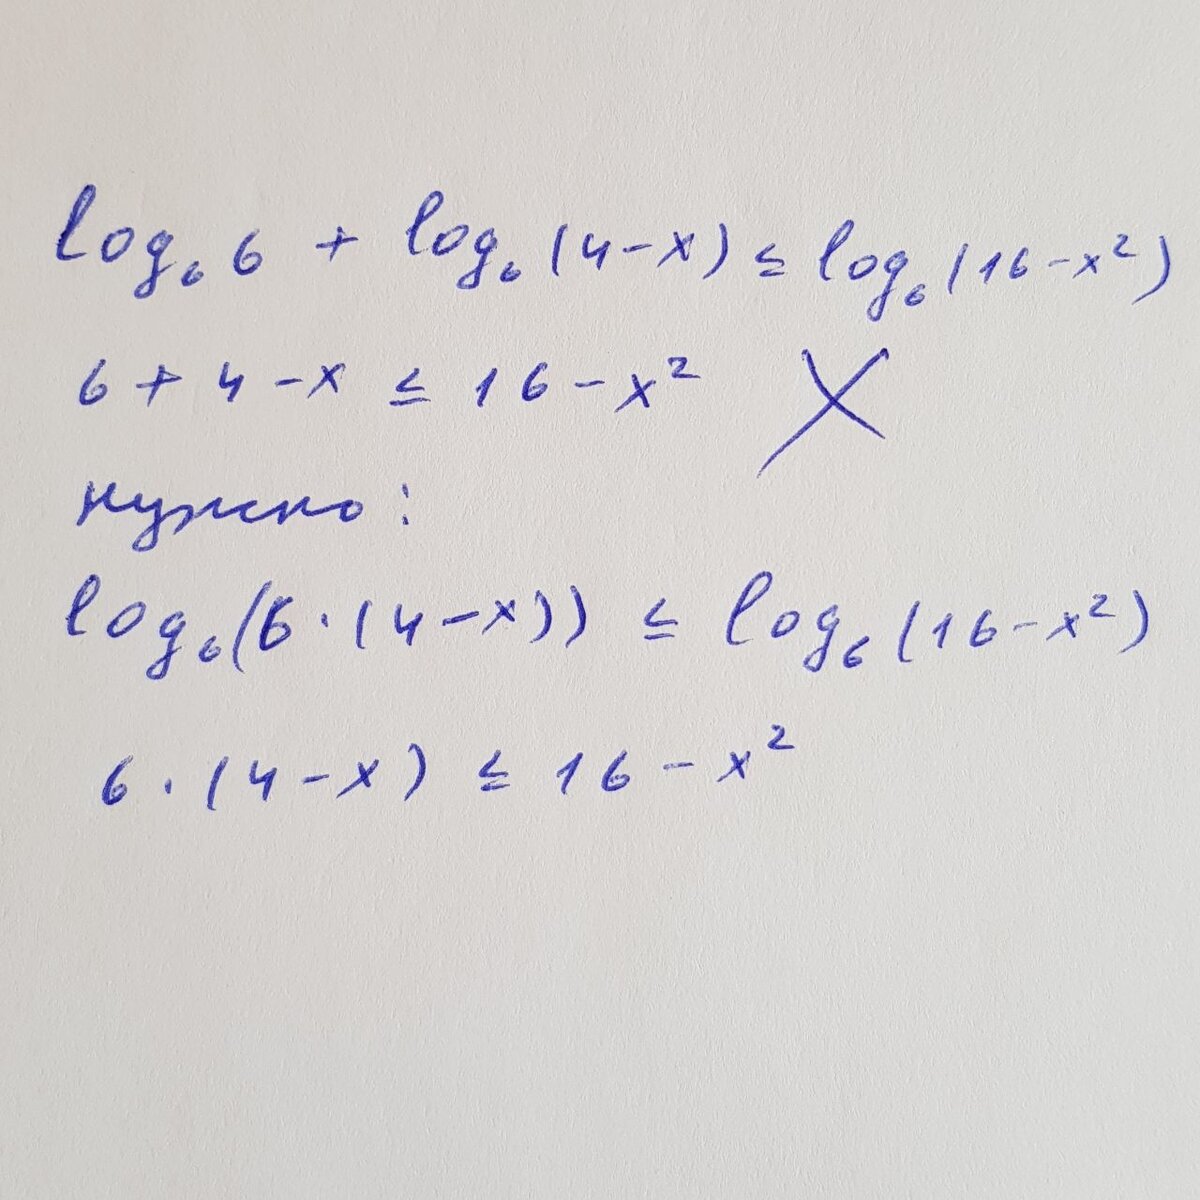 log₆ 6 + log₆ (4-x) ≤ log₆ (16-x²)
6 + 4 - x ≤ 16 - x² X
нужно:
log₆(6·(4-x)) ≤ log₆ (16-x²)
6·(4-x) ≤ 16 - x²